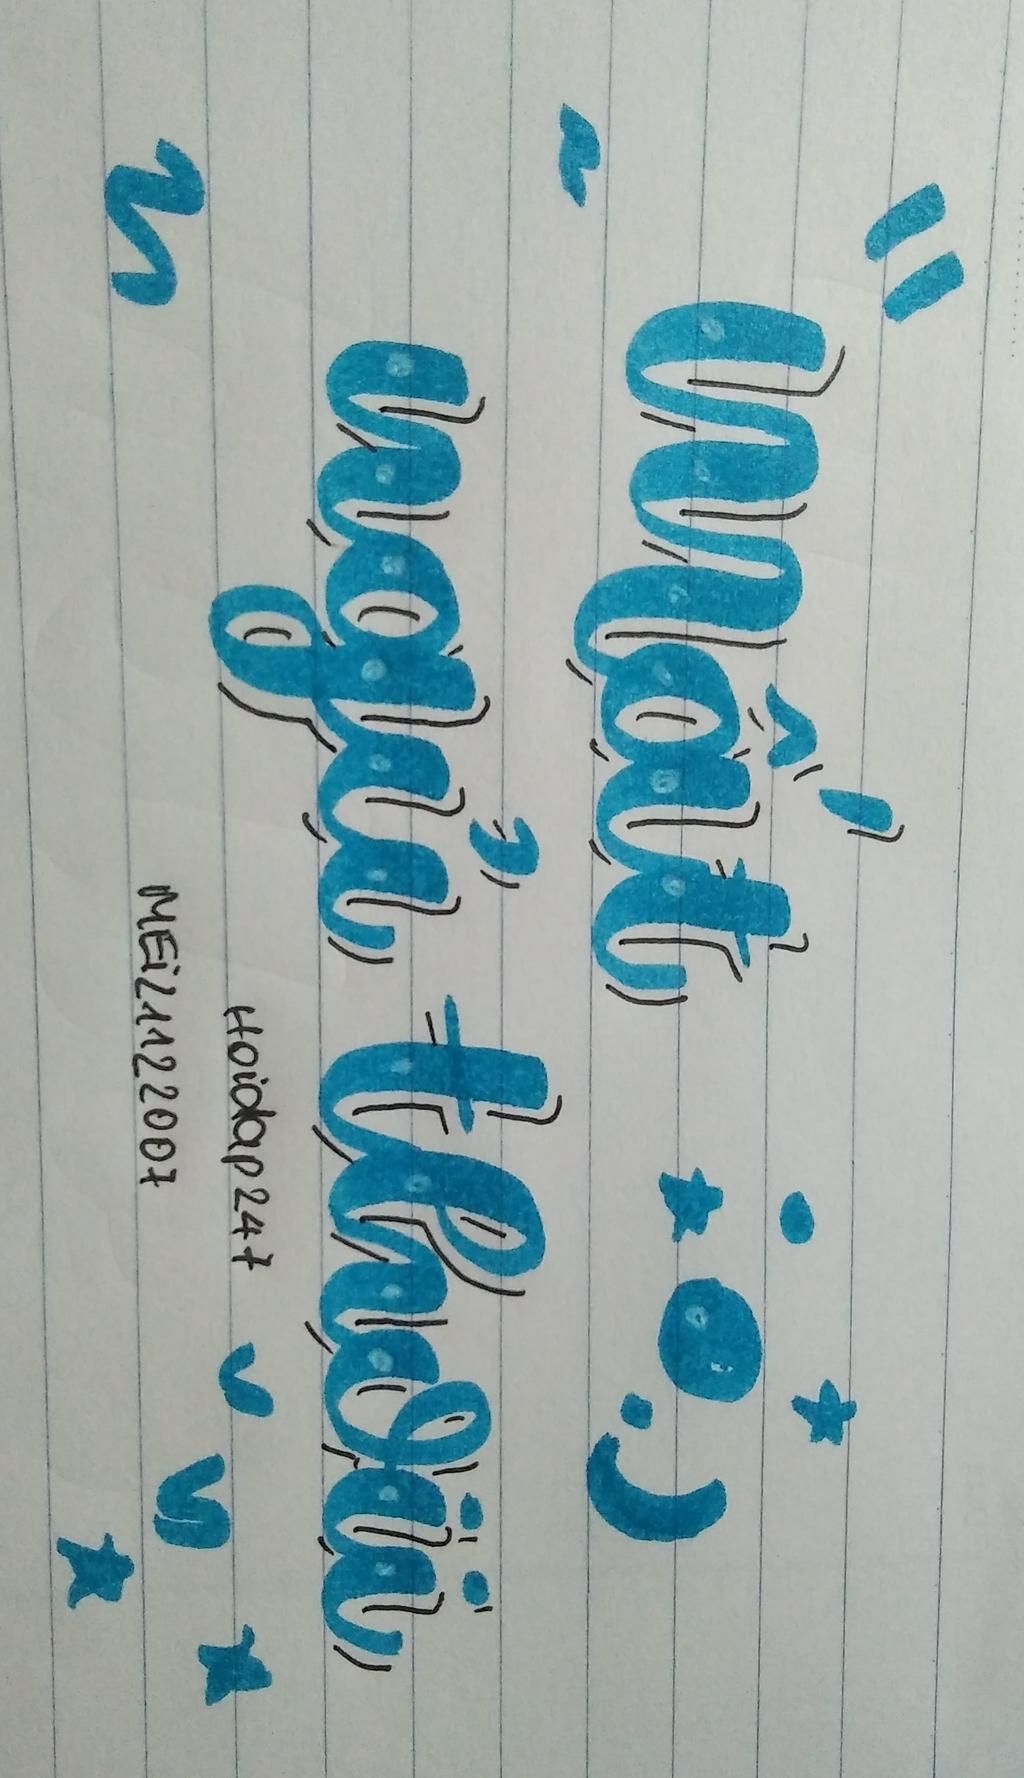 Mất
ngủ thoii
Hoidap247
MEi21122007